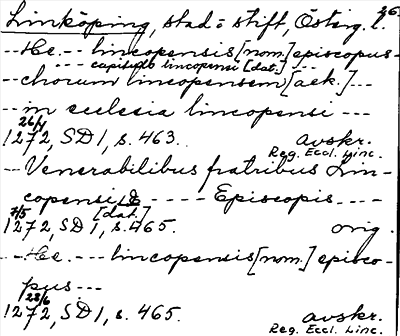 46.
Linköping, stad o stift, Österg. l.
-- He. -- lincopensis [nom.] episcopus -
--- capitulo lincopensi [dat.] ---
-- chorum lincopensem [ack.] ---
-- in ecclesia lincopensi ---
26/4
1272, SD 1, s. 463. avskr.
Reg. Eccl. Linc.
-- Venerabilibus fratribus Lin-
copensi ---- Episcopis ----
7/5 [dat.]
1272, SD 1, s. 465. orig.
-- He. --- lincopensis [nom.] episco-
pus ---
23/6
1272, SD 1, s. 465. avskr.
Reg. Eccl. Linc.